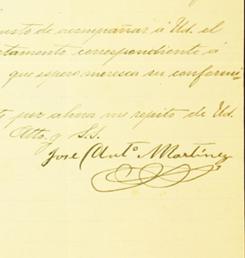 gusto de acompañar á Ud. el
rtamento correspondiente á
que espero merezca su conformi-
por ahora me repito de Ud.
Atto. y S.S.
José Anto. Martínez